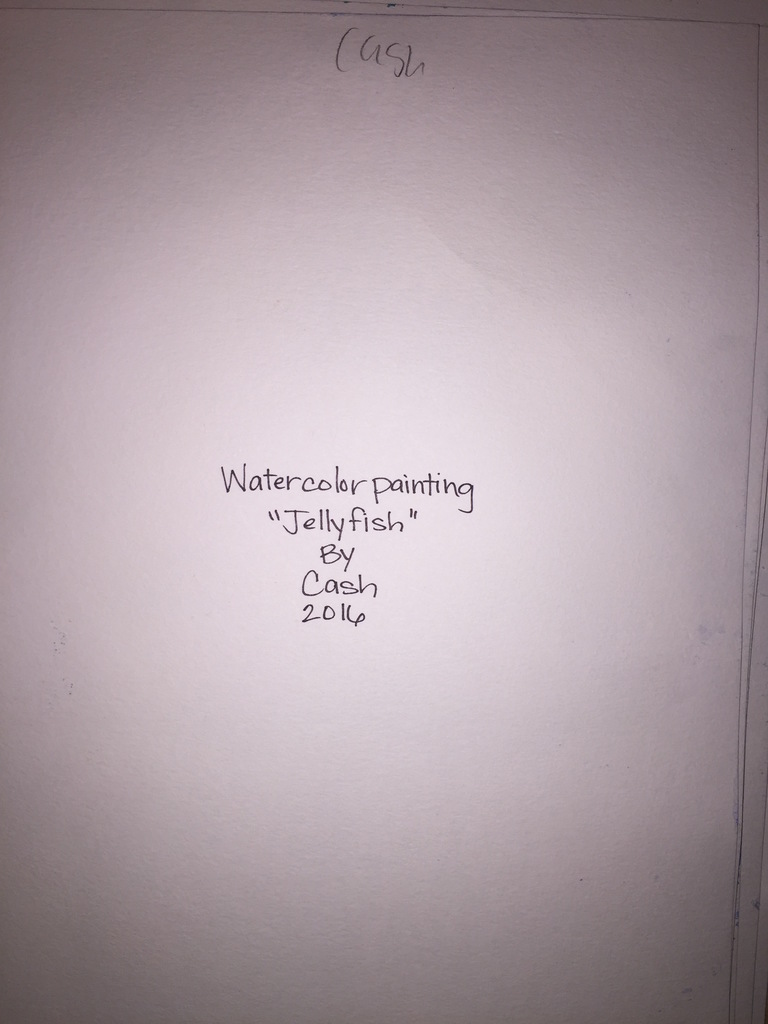 Cash
Watercolor painting
"Jellyfish"
By
Cash
2016